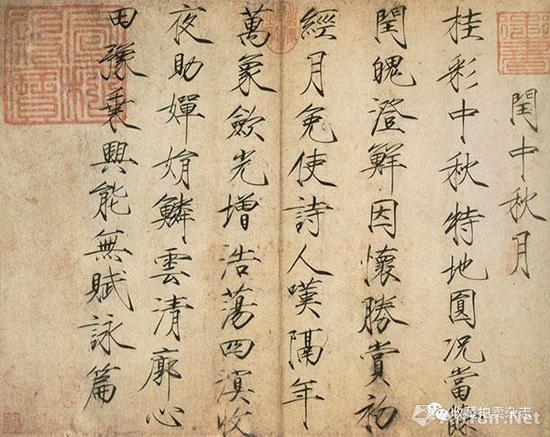 閏中秋月
桂彩中秋特地圓況當餘
閏魄澄鮮因懷勝賞初
經月免使詩人嘆隔年
萬象斂光增浩蕩四溟收
夜助嬋娟鱗雲清廓心
田豫乘興能無賦詠篇
收藏拍卖杂志